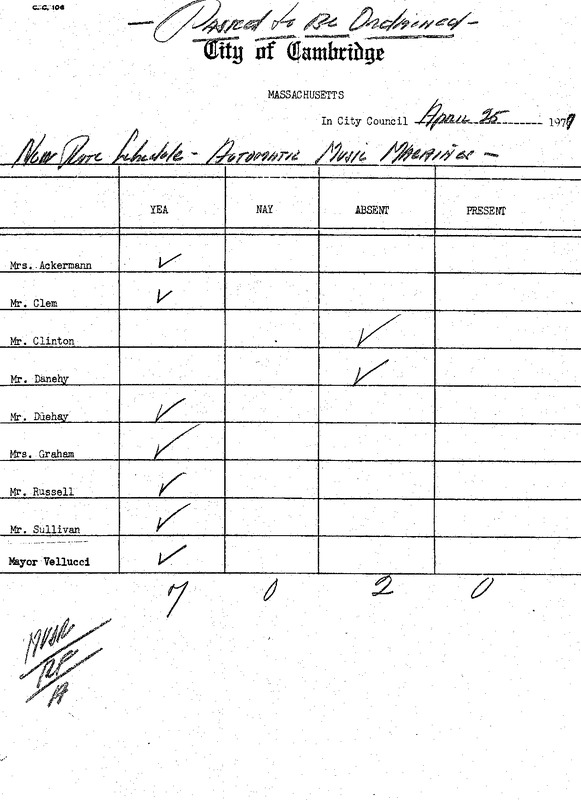 C.C. 104
— Passed to Be Ordained —
City of Cambridge
MASSACHUSETTS
In City Council April 25 1977
New Rate Schedule - Automatic Music Machines —
YEA NAY ABSENT PRESENT
Mrs. Ackermann ✓
Mr. Clem ✓
Mr. Clinton ✓
Mr. Danehy ✓
Mr. Duehay ✓
Mrs. Graham ✓
Mr. Russell ✓
Mr. Sullivan ✓
Mayor Vellucci ✓
7 0 2 0